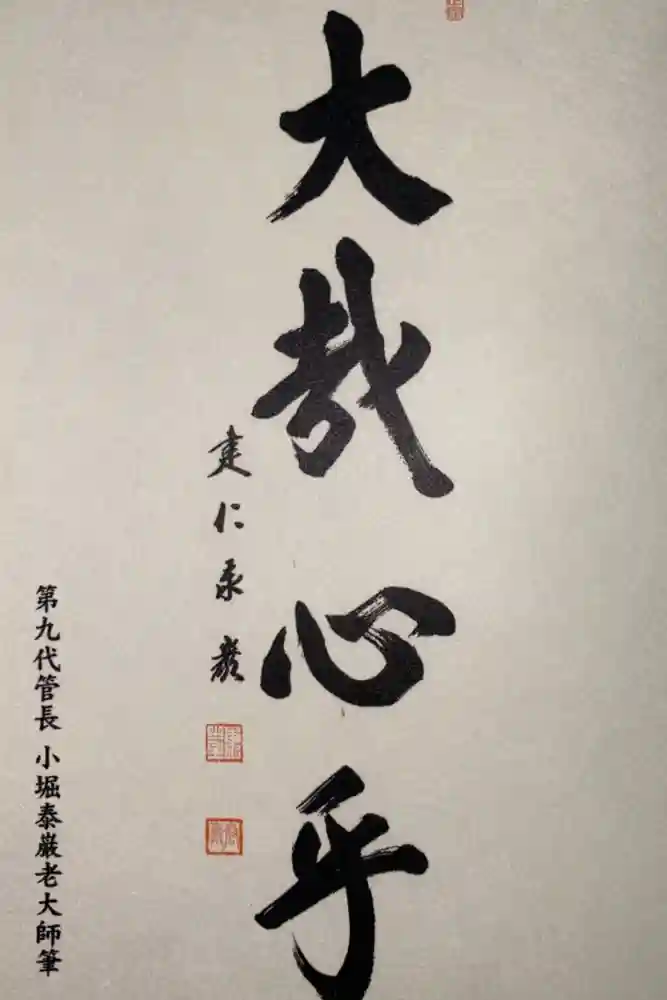 大哉心乎
建仁泰巖
第九代管長 小堀泰巖老大師筆